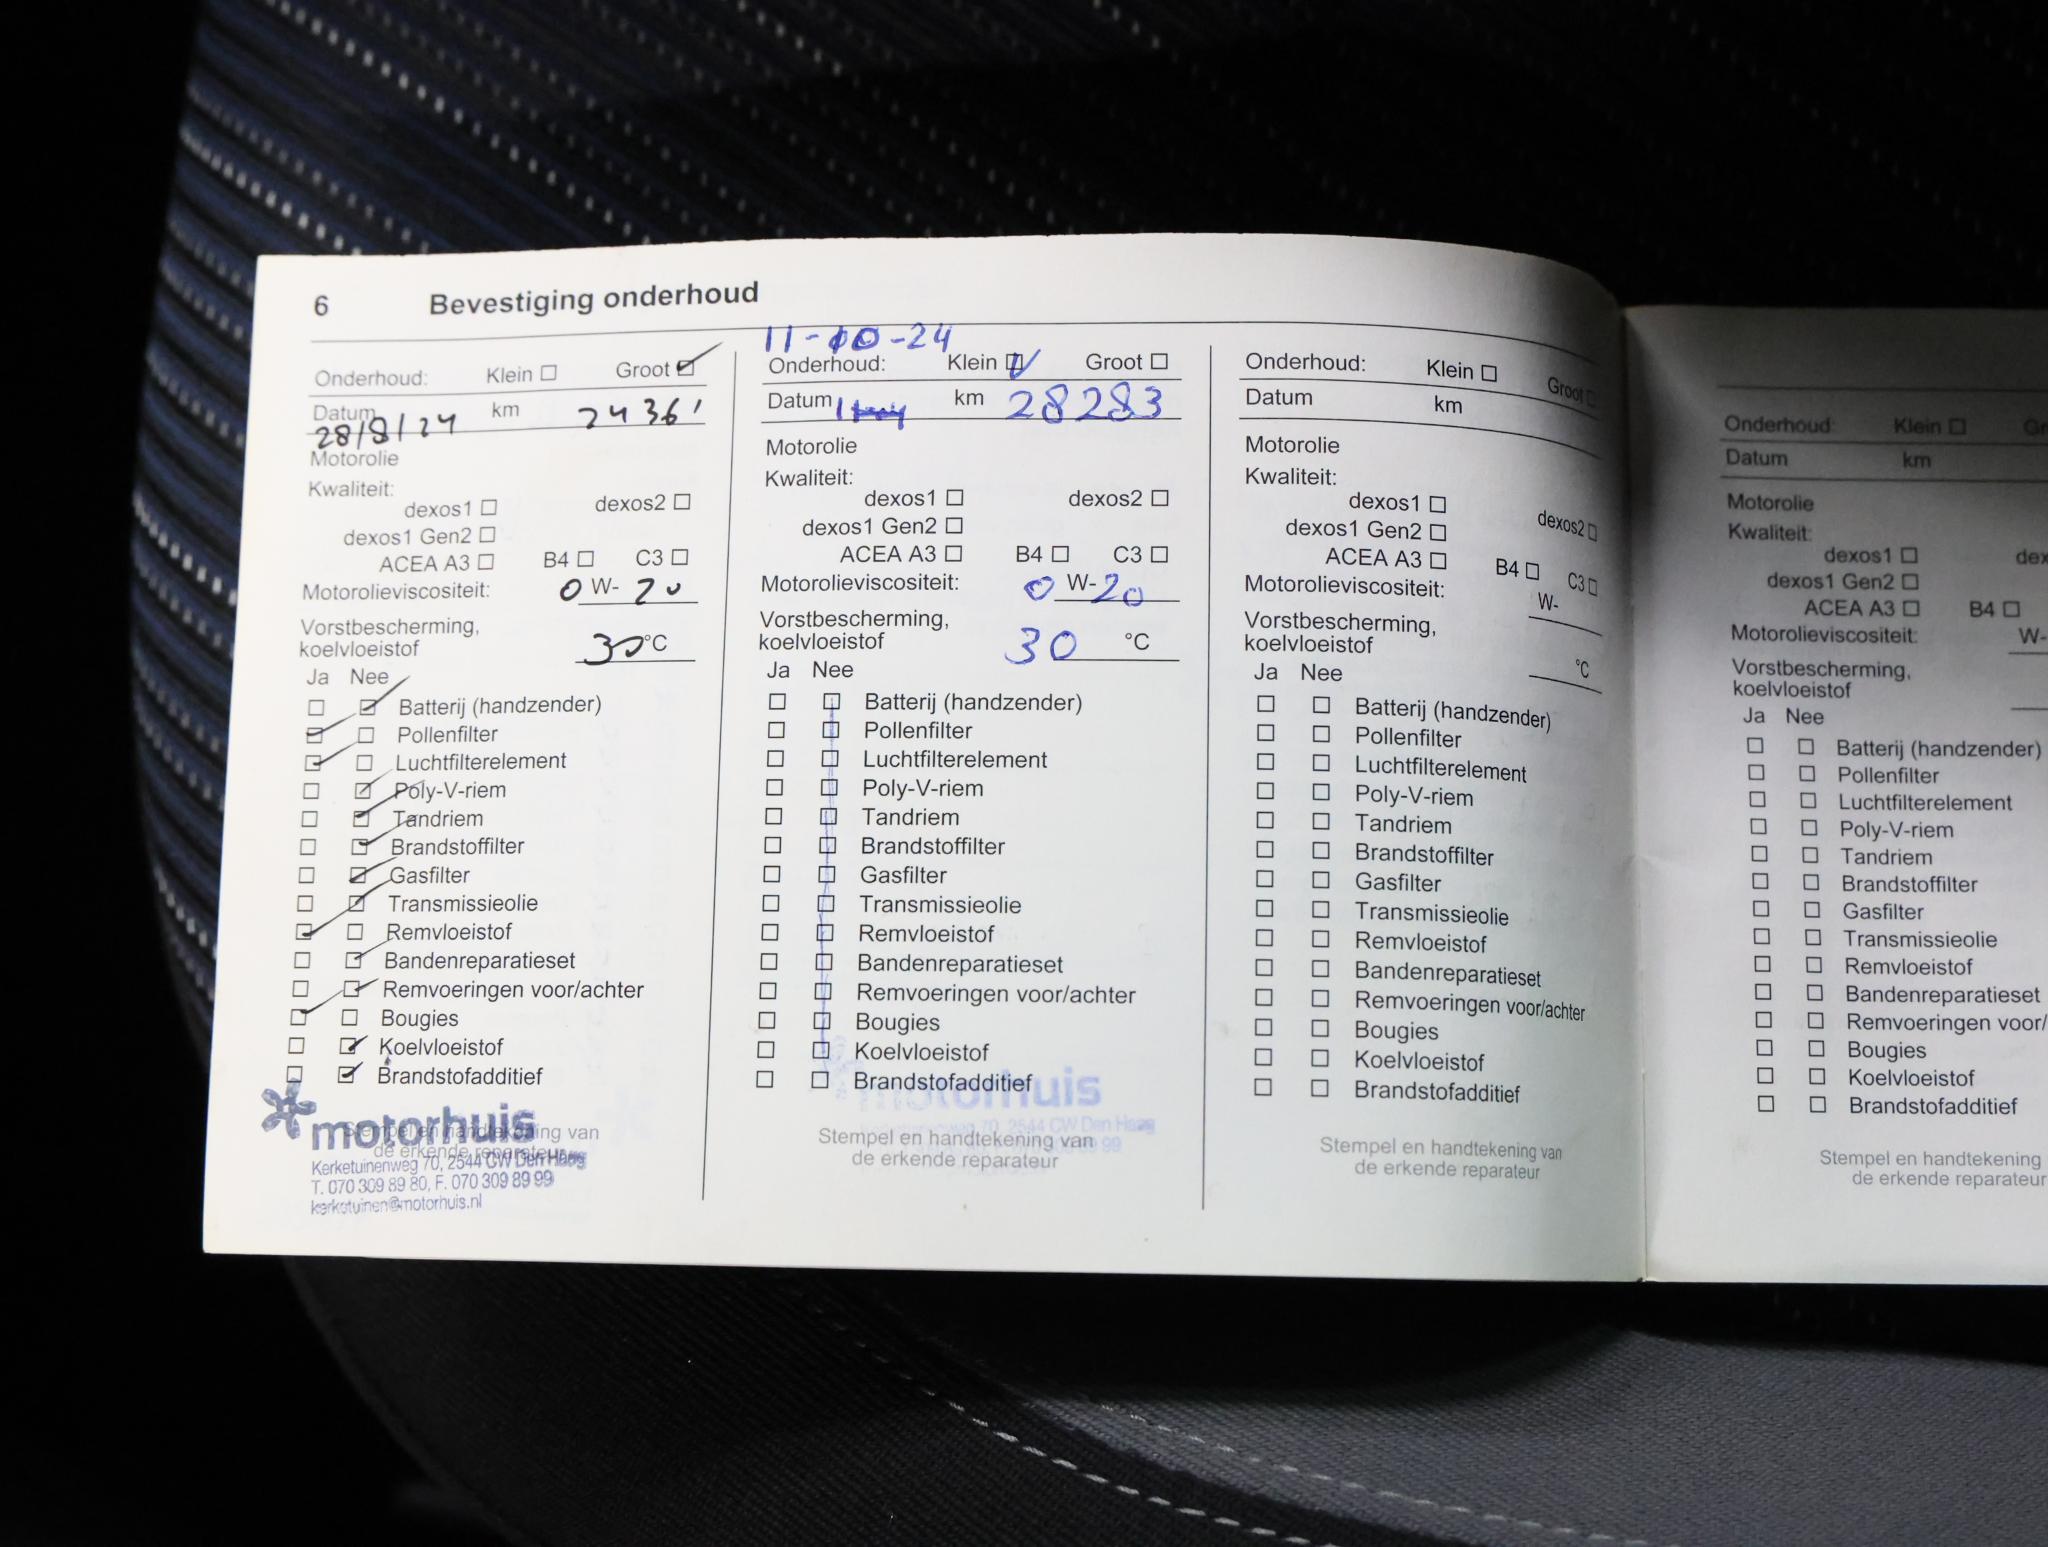 6 Bevestiging onderhoud
Onderhoud: Klein ☐ Groot ☑
Datum 28/8/24 km 24361
Motorolie
Kwaliteit:
dexos1 ☐ dexos2 ☐
dexos1 Gen2 ☐
ACEA A3 ☐ B4 ☐ C3 ☐
Motorolieviscositeit: 0 W- 20
Vorstbescherming,
koelvloeistof 30 °C
Ja Nee
☐ ☑ Batterij (handzender)
☑ ☐ Pollenfilter
☑ ☐ Luchtfilterelement
☐ ☑ Poly-V-riem
☐ ☑ Tandriem
☐ ☑ Brandstoffilter
☐ ☑ Gasfilter
☐ ☑ Transmissieolie
☑ ☐ Remvloeistof
☐ ☑ Bandenreparatieset
☐ ☑ Remvoeringen voor/achter
☑ ☐ Bougies
☐ ☑ Koelvloeistof
☐ ☑ Brandstofadditief
motorhuis
Stempel en handtekening van
de erkende reparateur
Kerketuinenweg 70, 2544 CW Den Haag
T. 070 309 89 80, F. 070 309 89 99
kerketuinen@motorhuis.nl
11-10-24
Onderhoud: Klein ☑ Groot ☐
Datum km 28283
Motorolie
Kwaliteit:
dexos1 ☐ dexos2 ☐
dexos1 Gen2 ☐
ACEA A3 ☐ B4 ☐ C3 ☐
Motorolieviscositeit: 0 W- 20
Vorstbescherming,
koelvloeistof 30 °C
Ja Nee
☐ ☐ Batterij (handzender)
☐ ☐ Pollenfilter
☐ ☐ Luchtfilterelement
☐ ☐ Poly-V-riem
☐ ☐ Tandriem
☐ ☐ Brandstoffilter
☐ ☐ Gasfilter
☐ ☐ Transmissieolie
☐ ☐ Remvloeistof
☐ ☐ Bandenreparatieset
☐ ☐ Remvoeringen voor/achter
☐ ☐ Bougies
☐ ☐ Koelvloeistof
☐ ☐ Brandstofadditief
motorhuis
70, 2544 CW Den Haag
Stempel en handtekening van
de erkende reparateur
Onderhoud: Klein ☐ Groot ☐
Datum km
Motorolie
Kwaliteit:
dexos1 ☐ dexos2 ☐
dexos1 Gen2 ☐
ACEA A3 ☐ B4 ☐ C3 ☐
Motorolieviscositeit: W-
Vorstbescherming,
koelvloeistof °C
Ja Nee
☐ ☐ Batterij (handzender)
☐ ☐ Pollenfilter
☐ ☐ Luchtfilterelement
☐ ☐ Poly-V-riem
☐ ☐ Tandriem
☐ ☐ Brandstoffilter
☐ ☐ Gasfilter
☐ ☐ Transmissieolie
☐ ☐ Remvloeistof
☐ ☐ Bandenreparatieset
☐ ☐ Remvoeringen voor/achter
☐ ☐ Bougies
☐ ☐ Koelvloeistof
☐ ☐ Brandstofadditief
Stempel en handtekening van
de erkende reparateur
Onderhoud: Klein ☐ Gr
Datum km
Motorolie
Kwaliteit:
dexos1 ☐ dex
dexos1 Gen2 ☐
ACEA A3 ☐ B4 ☐
Motorolieviscositeit: W-
Vorstbescherming,
koelvloeistof
Ja Nee
☐ ☐ Batterij (handzender)
☐ ☐ Pollenfilter
☐ ☐ Luchtfilterelement
☐ ☐ Poly-V-riem
☐ ☐ Tandriem
☐ ☐ Brandstoffilter
☐ ☐ Gasfilter
☐ ☐ Transmissieolie
☐ ☐ Remvloeistof
☐ ☐ Bandenreparatieset
☐ ☐ Remvoeringen voor/
☐ ☐ Bougies
☐ ☐ Koelvloeistof
☐ ☐ Brandstofadditief
Stempel en handtekening
de erkende reparateur